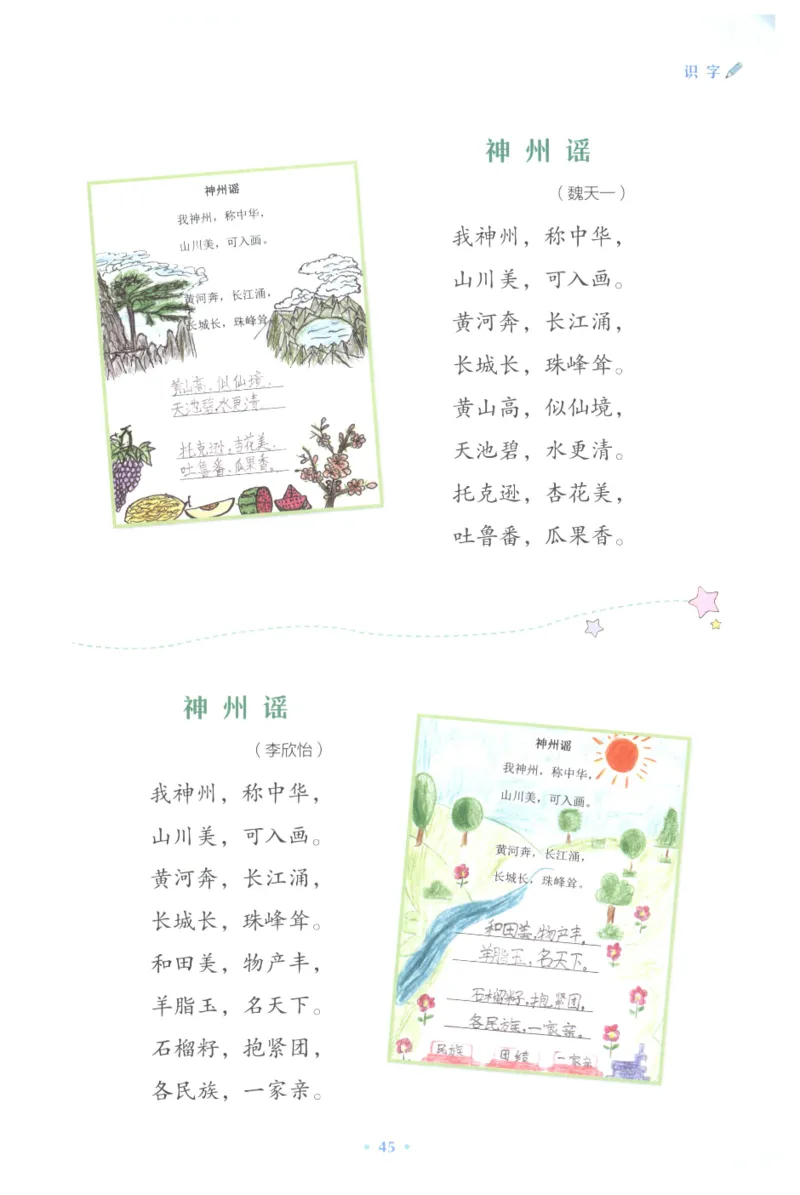 识 字
神 州 谣
（魏天一）
我神州，称中华，
山川美，可入画。
黄河奔，长江涌，
长城长，珠峰耸。
黄山高，似仙境，
天池碧，水更清。
托克逊，杏花美，
吐鲁番，瓜果香。
神州谣
我神州，称中华，
山川美，可入画。
黄河奔，长江涌，
长城长，珠峰耸
黄山高，似仙境，
天池碧，水更清
托克逊，杏花美，
吐鲁番，瓜果香。
神 州 谣
（李欣怡）
我神州，称中华，
山川美，可入画。
黄河奔，长江涌，
长城长，珠峰耸。
和田美，物产丰，
羊脂玉，名天下。
石榴籽，抱紧团，
各民族，一家亲。
神州谣
我神州，称中华，
山川美，可入画。
黄河奔，长江涌，
长城长，珠峰耸。
和田美，物产丰，
羊脂玉，名天下。
石榴籽，抱紧团，
各民族，一家亲。
民族 团结 一家亲
45